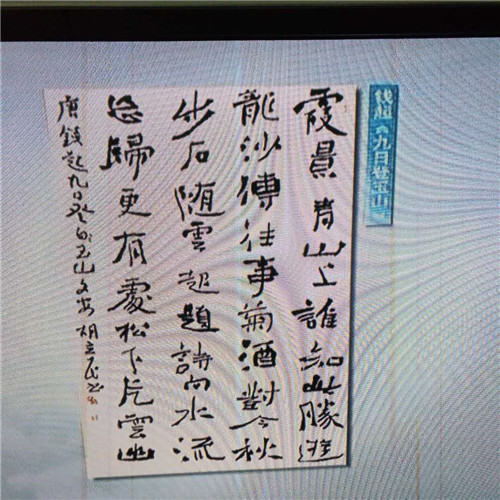 钱起《九日登玉山》
霞景青山上誰知此勝遊
龍沙傳往事菊酒對今秋
步石随雲起題詩向水流
忘歸更有處松下片雲幽
唐錢起九日登玉山